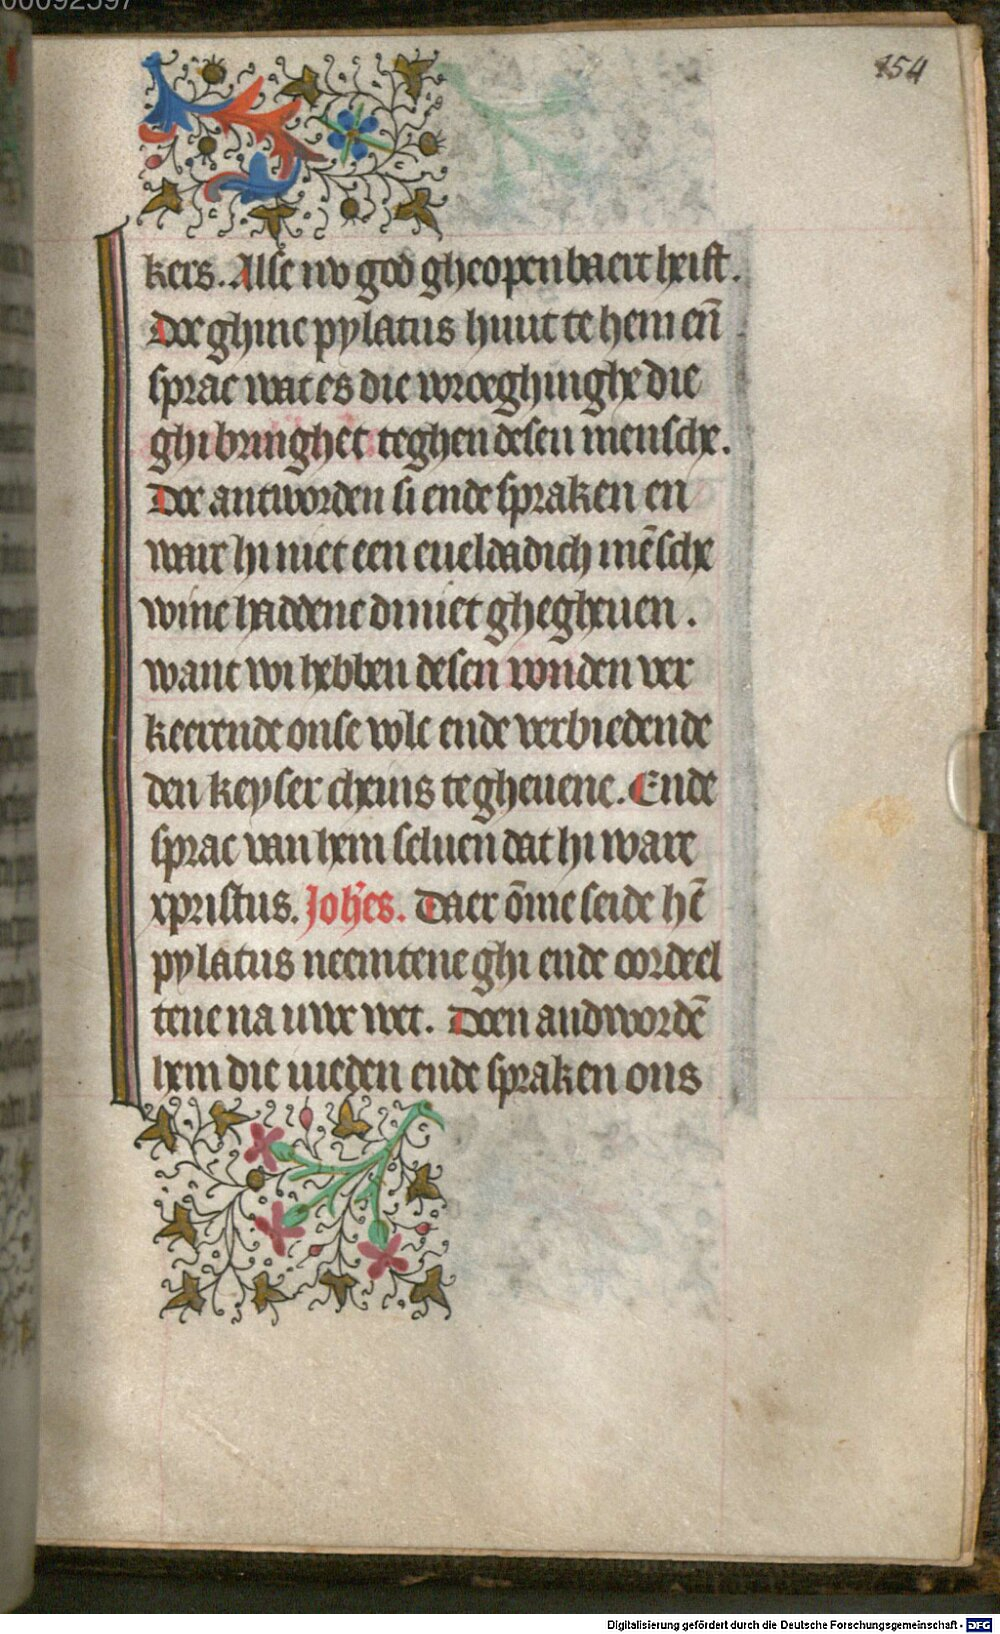 00092597
154
kers. Alse nv god gheopenbaert heift.
Doe ghinc pylatus huut te hem en̄
sprac wat es die wroeghinghe die
ghi bringhet teghen desen mensche.
Doe antworden si ende spraken en
ware hi niet een eueldadich mēsche
wine haddene di niet ghegheuen.
want wi hebben desen vonden ver
keerende onse volc ende verbiedende
den keyser cheins te gheuene. Ende
sprac van hem seluen dat hi ware
xpristus. Joh̄es. Daer ōme seide hē
pylatus neemtene ghi ende oordeel
tene na uwe wet. Doen andwordē
hem die iueden ende spraken ons
Digitalisierung gefördert durch die Deutsche Forschungsgemeinschaft - DFG